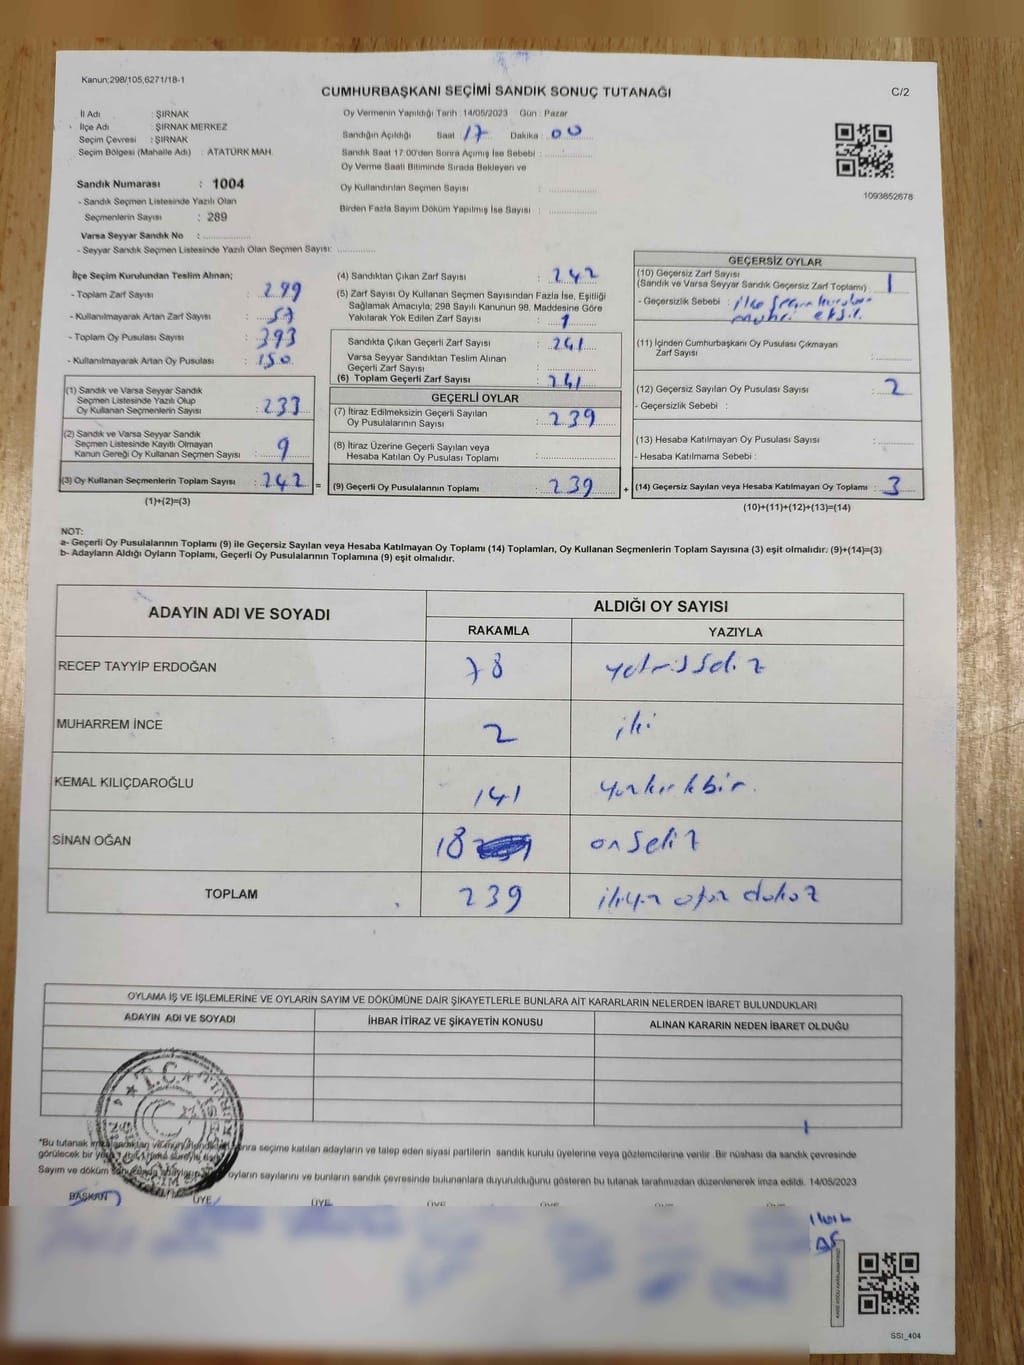 Kanun:298/105,6271/18-1
CUMHURBAŞKANI SEÇİMİ SANDIK SONUÇ TUTANAĞI
C/2
İl Adı : ŞIRNAK
İlçe Adı : ŞIRNAK MERKEZ
Seçim Çevresi : ŞIRNAK
Seçim Bölgesi (Mahalle Adı) : ATATÜRK MAH.
Oy Vermenin Yapıldığı Tarih : 14/05/2023 Gün : Pazar
Sandığın Açıldığı Saat 17 Dakika : 00
Sandık Saat 17:00'den Sonra Açımış İse Sebebi :
Oy Verme Saati Bitiminde Sırada Bekleyen ve
Oy Kullandırılan Seçmen Sayısı :
Birden Fazla Sayım Döküm Yapılmış İse Sayısı :
1093852678
Sandık Numarası : 1004
- Sandık Seçmen Listesinde Yazılı Olan
Seçmenlerin Sayısı : 289
Varsa Seyyar Sandık No :
- Seyyar Sandık Seçmen Listesinde Yazılı Olan Seçmen Sayısı:
İlçe Seçim Kurulundan Teslim Alınan;
- Toplam Zarf Sayısı : 299
- Kullanılmayarak Artan Zarf Sayısı : 57
- Toplam Oy Pusulası Sayısı : 393
- Kullanılmayarak Artan Oy Pusulası : 150
(1) Sandık ve Varsa Seyyar Sandık
Seçmen Listesinde Yazılı Olup
Oy Kullanan Seçmenlerin Sayısı : 233
(2) Sandık ve Varsa Seyyar Sandık
Seçmen Listesinde Kayıtlı Olmayan
Kanun Gereği Oy Kullanan Seçmen Sayısı : 9
(3) Oy Kullanan Seçmenlerin Toplam Sayısı : 242 =
(1)+(2)=(3)
(4) Sandıktan Çıkan Zarf Sayısı : 242
(5) Zarf Sayısı Oy Kullanan Seçmen Sayısından Fazla İse, Eşitliği
Sağlamak Amacıyla; 298 Sayılı Kanunun 98. Maddesine Göre
Yakılarak Yok Edilen Zarf Sayısı : 1
Sandıkta Çıkan Geçerli Zarf Sayısı : 241
Varsa Seyyar Sandıktan Teslim Alınan
Geçerli Zarf Sayısı :
(6) Toplam Geçerli Zarf Sayısı : 241
GEÇERLİ OYLAR
(7) İtiraz Edilmeksizin Geçerli Sayılan
Oy Pusulalarının Sayısı : 239
(8) İtiraz Üzerine Geçerli Sayılan veya
Hesaba Katılan Oy Pusulası Toplamı :
(9) Geçerli Oy Pusulalarının Toplamı : 239 +
GEÇERSİZ OYLAR
(10) Geçersiz Zarf Sayısı
(Sandık ve Varsa Seyyar Sandık Geçersiz Zarf Toplamı) : 1
- Geçersizlik Sebebi : ilçe seçim kurulu
mührü eksik
(11) İçinden Cumhurbaşkanı Oy Pusulası Çıkmayan
Zarf Sayısı :
(12) Geçersiz Sayılan Oy Pusulası Sayısı : 2
- Geçersizlik Sebebi :
(13) Hesaba Katılmayan Oy Pusulası Sayısı :
- Hesaba Katılmama Sebebi :
(14) Geçersiz Sayılan veya Hesaba Katılmayan Oy Toplamı : 3
(10)+(11)+(12)+(13)=(14)
NOT:
a- Geçerli Oy Pusulalarının Toplamı (9) ile Geçersiz Sayılan veya Hesaba Katılmayan Oy Toplamı (14) Toplamları, Oy Kullanan Seçmenlerin Toplam Sayısına (3) eşit olmalıdır. (9)+(14)=(3)
b- Adayların Aldığı Oyların Toplamı, Geçerli Oy Pusulalarının Toplamına (9) eşit olmalıdır.
ADAYIN ADI VE SOYADI
ALDIĞI OY SAYISI
RAKAMLA YAZIYLA
RECEP TAYYİP ERDOĞAN 78 yetmişsekiz
MUHARREM İNCE 2 iki
KEMAL KILIÇDAROĞLU 141 yüzkırkbir
SİNAN OĞAN 18 onsekiz
TOPLAM 239 ikiyüz otuz dokuz
OYLAMA İŞ VE İŞLEMLERİNE VE OYLARIN SAYIM VE DÖKÜMÜNE DAİR ŞİKAYETLERLE BUNLARA AİT KARARLARIN NELERDEN İBARET BULUNDUKLARI
ADAYIN ADI VE SOYADI İHBAR İTİRAZ VE ŞİKAYETİN KONUSU ALINAN KARARIN NEDEN İBARET OLDUĞU
T.C.
*Bu tutanak seçime katılan adayların ve talep eden siyasi partilerin sandık kurulu üyelerine veya gözlemcilerine verilir. Bir nüshası da sandık çevresinde
görülecek bir yere
Sayım ve döküm oyların sayılarını ve bunların sandık çevresinde bulunanlara duyurulduğunu gösteren bu tutanak tarafımızdan düzenlenerek imza edildi. 14/05/2023
BAŞKAN ÜYE ÜYE ÜYE ÜYE ÜYE ÜYE
SSI_404